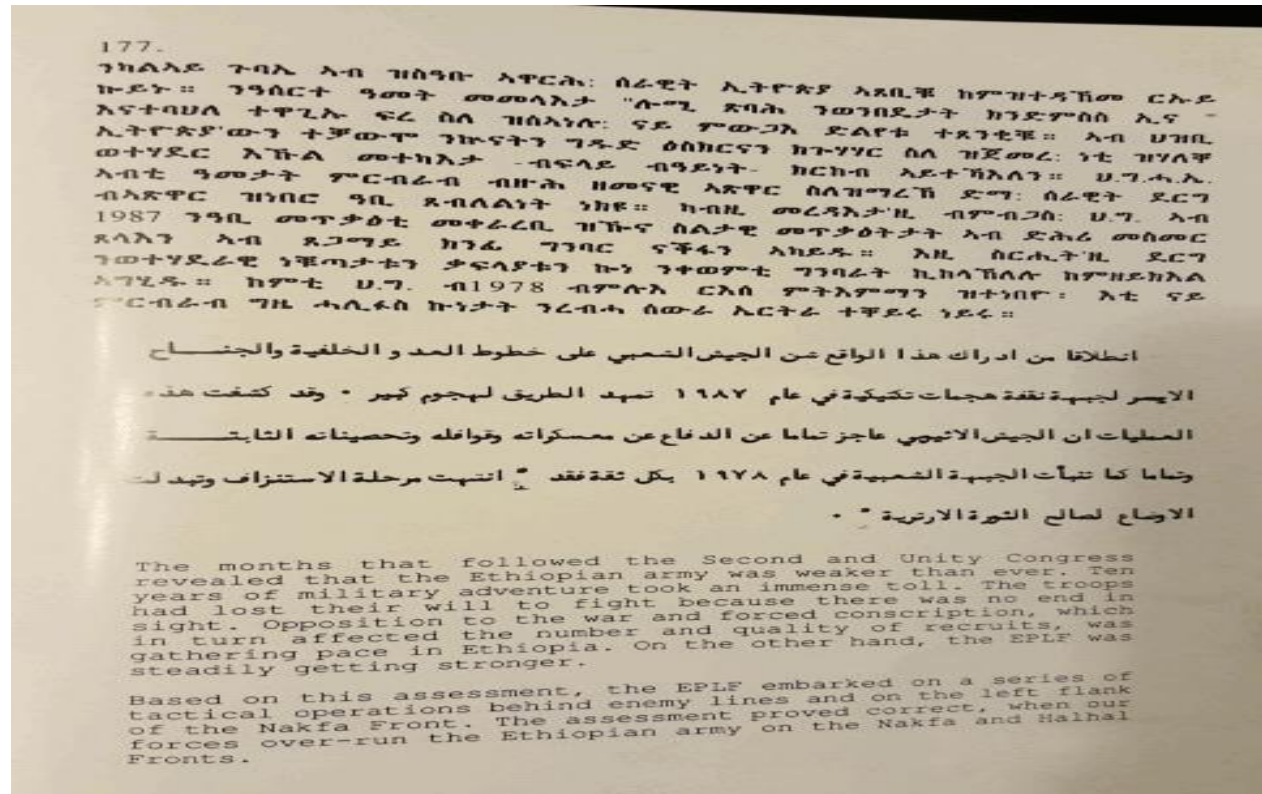 177.
ንካልኣይ ጉባኤ ኣብ ዝሰዓቡ ኣዋርሕ: ሰራዊት ኢትዮጵያ ኣጸቢቑ ከምዝተዳኸመ ርኡይ
ኩይኑ ። ንዓሰርተ ዓመት መመላእታ "ሎሚ ጽባሕ ንወንበዴታት ክንድምስስ ኢና -
እናተባህለ ተዋጊኡ ፍረ ስለ ዝሰኣነሉ: ናይ ምውጋእ ድልየቱ ተጸንቂቑ። ኣብ ህዝቢ
ኢትዮጵያ'ውን ተቓውሞ ንኲናትን ግዱድ ዕስክርናን ክጉሃሃር ስለ ዝጀመረ: ነቲ ዝሃለቐ
ወተሃደር እኹል መተካእታ -ብፍላይ ብዓይነት- ክርከብ ኣይተኻእለን። ህ.ግ.ሓ.ኤ.
ኣብቲ ዓመታት ምርብራብ ብዙሕ ዘመናዊ ኣጽዋር ስለዝማረኸ ድማ: ሰራዊት ደርግ
ብኣጽዋር ዝነበሮ ዓቢ ጸብለልነት ነክዩ። ካብዚ መረዳእታ'ዚ ብምብጋስ: ህ.ግ. ኣብ
1987 ንዓቢ መጥቃዕቲ መቀራረቢ ዝኾና ስልታዊ መጥቃዕትታት ኣብ ድሕሪ መስመር
ጸላእን ኣብ ጸጋማይ ክንፊ ግንባር ናቕፋን ኣካይዱ። እዚ ስርሒት'ዚ ደርግ
ንወተሃደራዊ ነቑጣታቱን ቃፍላያቱን ኩነ ንቀወምቲ ግንባራት ኪከላኸለሉ ከምዘይክእል
ኣግሂዱ። ከምቲ ህ.ግ. ብ1978 ብምሉእ ርእሰ ምትእምማን ዝተነበዮ: እቲ ናይ
ምርብራብ ግዜ ሓሊፉስ ኩነታት ንረብሓ ሰውራ ኤርትራ ተቐይሩ ነይሩ።
انطلاقا من ادراك هذا الواقع شن الجيش الشعبي على خطوط العدو الخلفية والجنـــاح
الايسر لجبهة نقفة هجمات تكتيكية في عام ١٩٨٧ تمهد الطريق لهجوم كبير ٠ وقد كشفت هذه
العمليات ان الجيش الاثيوبي عاجز تماما عن الدفاع عن معسكراته وقوافله وتحصيناته الثابتـــــة
وتماما كما تنبأت الجبهة الشعبية في عام ١٩٧٨ بكل ثقة فقد " انتهت مرحلة الاستنزاف وتبدلت
الاوضاع لصالح الثورة الارترية " ٠
The months that followed the Second and Unity Congress
revealed that the Ethiopian army was weaker than ever. Ten
years of military adventure took an immense toll. The troops
had lost their will to fight because there was no end in
sight. Opposition to the war and forced conscription, which
in turn affected the number and quality of recruits, was
gathering pace in Ethiopia. On the other hand, the EPLF was
steadily getting stronger.
Based on this assessment, the EPLF embarked on a series of
tactical operations behind enemy lines and on the left flank
of the Nakfa Front. The assessment proved correct, when our
forces over-run the Ethiopian army on the Nakfa and Halhal
Fronts.